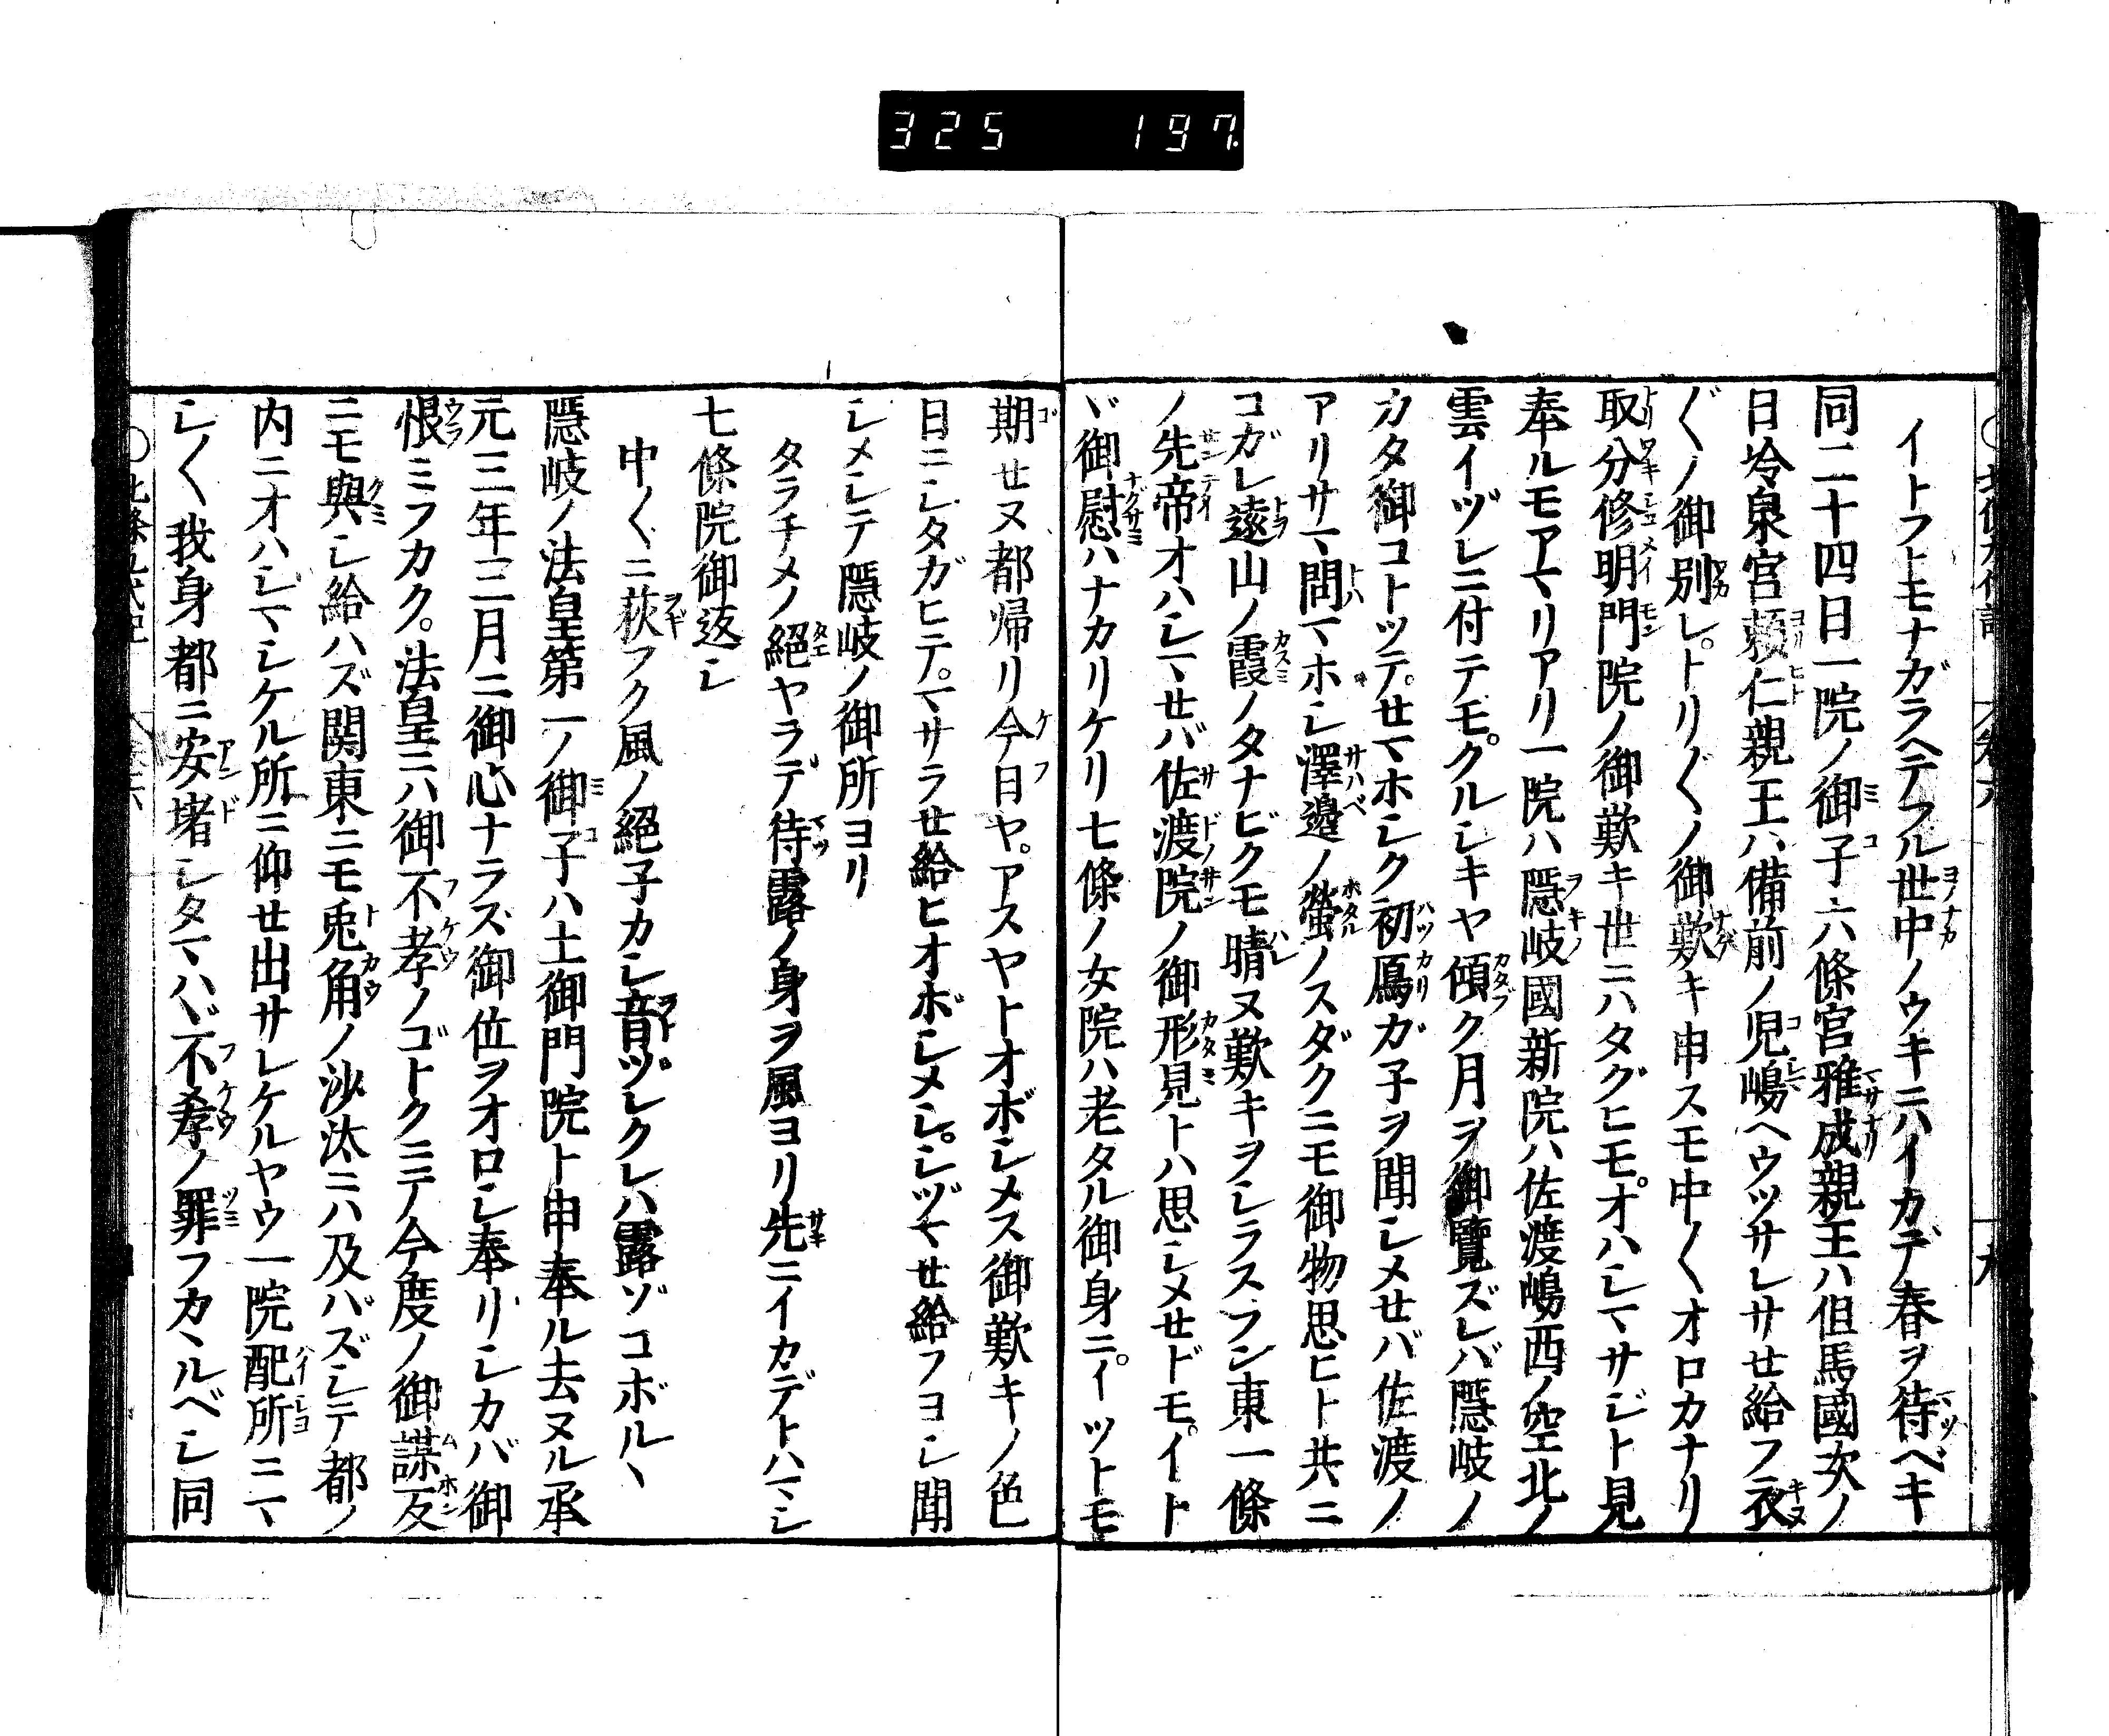 325 197
イトフトモナガラヘテフル世中ノウキニハイカデ春ヲ待ベキ
同二十四日一院ノ御子六條宮雅成親王ハ但馬國次ノ
日冷泉宮頼仁親王ハ備前ノ児嶋ヘウツサレサせ給フ衣
〲ノ御別レ。トリ〲ノ御歎キ申スモ中〱オロカナリ
取分修明門院ノ御歎キ世ニハタグヒモ。オハシマサジト見
奉ルモアマリアリ一院ハ隠岐國新院ハ佐渡嶋西ノ空北ノ
雲イヅレニ付テモ。クルシキヤ傾ク月ヲ御覽ズレバ隠岐ノ
カタ御コトツテ。せマホシク初鴈ガ子ヲ聞シメせバ佐渡ノ
アリサマ問マホシ澤邉ノ螢ノスダクニモ御物思ヒト共ニ
コガレ遠山ノ霞ノタナビクモ晴ヌ歎キヲシラスフン東一條
ノ先帝オハシマせバ佐渡院ノ御形見トハ思シメせドモ。イト
ヾ御慰ハナカリケリ七條ノ女院ハ老タル御身ニ。イツトモ
期せヌ都帰リ今日ヤ。アスヤトオボシメス御歎キノ色
日ニシタガヒテ。マサラせ給ヒオボシメシ。シヅマせ給フヨシ聞
シメシテ隠岐ノ御所ヨリ
タラチメノ絕ヤラデ待露ノ身ヲ風ヨリ先ニイカデトハマシ
七條院御返シ
中〱ニ荻フク風ノ絕子カシ音ヅレクレハ露ゾコボルヽ
隠岐ノ法皇第一ノ御子ハ土御門院ト申奉ル去ヌル承
元三年三月ニ御心ナラズ御位ヲオロシ奉リシカバ御
恨ミフカク。法皇ニハ御不孝ノゴトクニテ今度ノ御謀反
ニモ與シ給ハズ関東ニモ兎角ノ沙汰ニハ及バズシテ都ノ
内ニオハシマシケル所ニ仰せ出サレケルヤウ一院配所ニマ
シ〱我身都ニ安堵シタマハヾ不孝ノ罪フカヽルベシ同